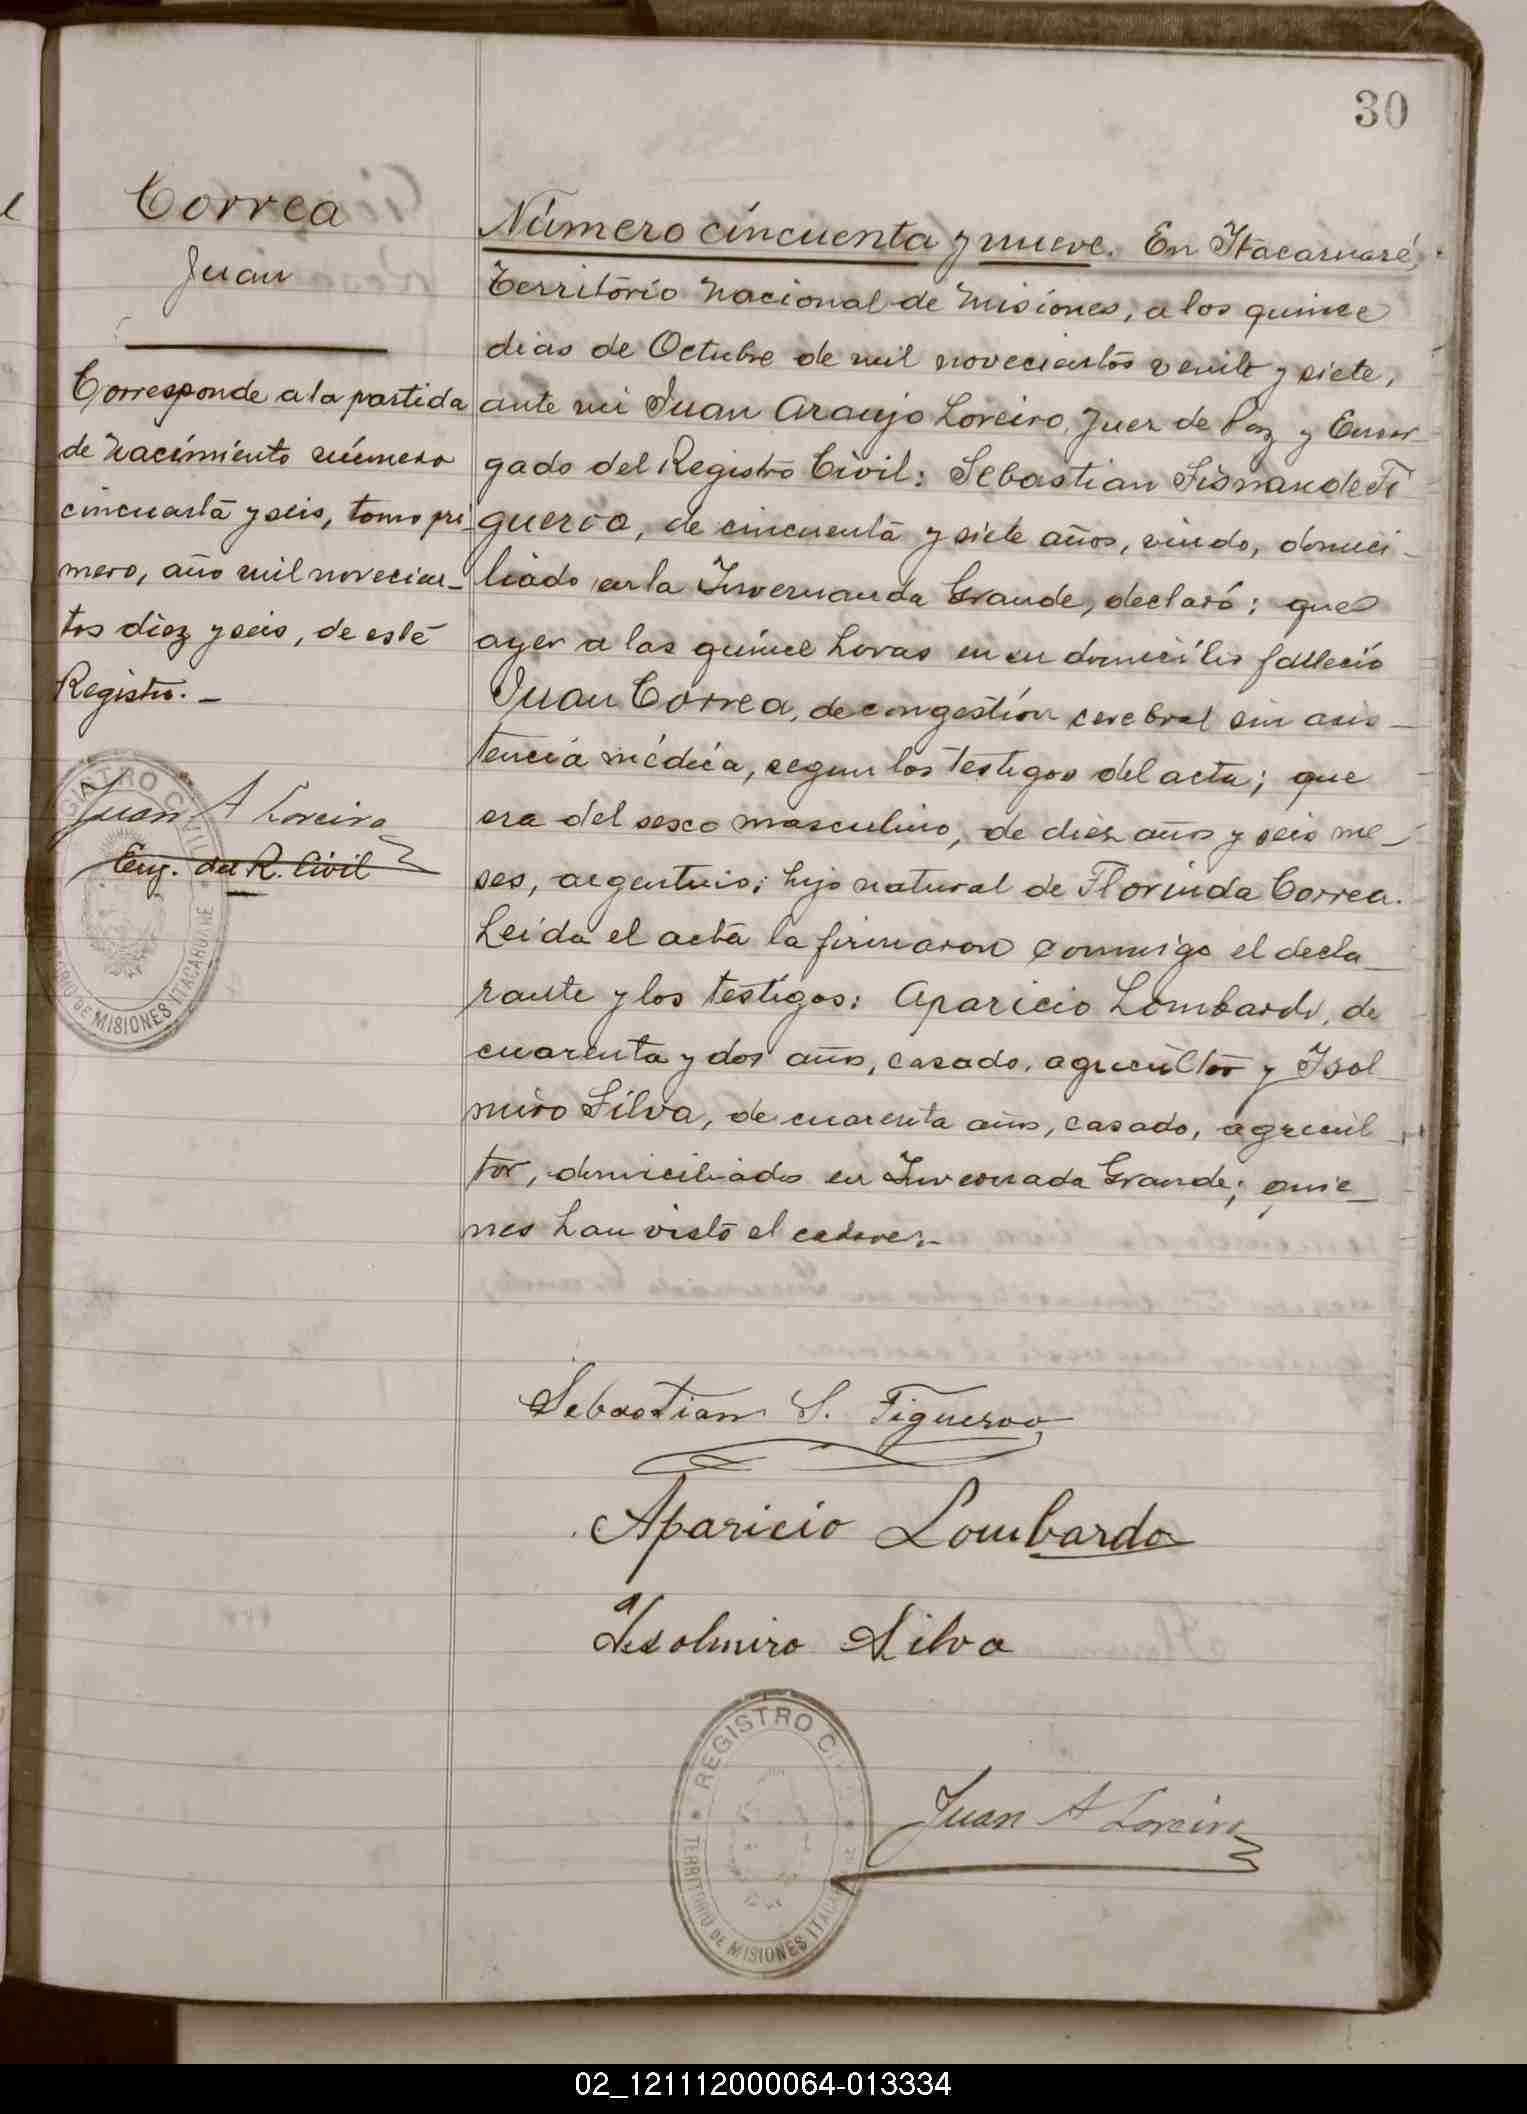 30
Correa
Juan
Corresponde a la partida
de nacimiento número
cincuenta y seis, tomo pri-
mero, año mil novecien-
tos diez y seis, de este
Registro.-
Juan A Loreiro
Enc. del R. Civil
REGISTRO CIVIL
TERRITORIO DE MISIONES ITACARUARE
Número cincuenta y nueve. En Itacaruaré,
Territorio Nacional de Misiones, a los quince
dias de Octubre de mil novecientos veinte y siete,
ante mi Juan Araujo Loreiro, Juez de Paz y Encar-
gado del Registro Civil: Sebastian Sisnande Fi
gueroa, de cincuenta y siete años, viudo, domici-
liado en la Invernanda Grande, declaró: que
ayer a las quince horas en su domicilio falleció
Juan Correa, de congestión cerebral sin asis-
tencia médica, segun los testigos del acta; que
era del sexo masculino, de diez años y seis me-
ses, argentino; hijo natural de Florinda Correa.
Leida el acta la firmaron conmigo el decla-
rante y los testigos: Aparicio Lombardo, de
cuarenta y dos años, casado, agricultor y Isol
miro Silva, de cuarenta años, casado, agricul-
tor, domiciliados en Invernada Grande; quie-
nes han visto el cadaver.-
Sebastian S. Figueroa
Aparicio Lombardo
Isolmiro Silva
REGISTRO CIVIL
TERRITORIO DE MISIONES ITACARUARE
Juan A Loreiro
02_121112000064-013334